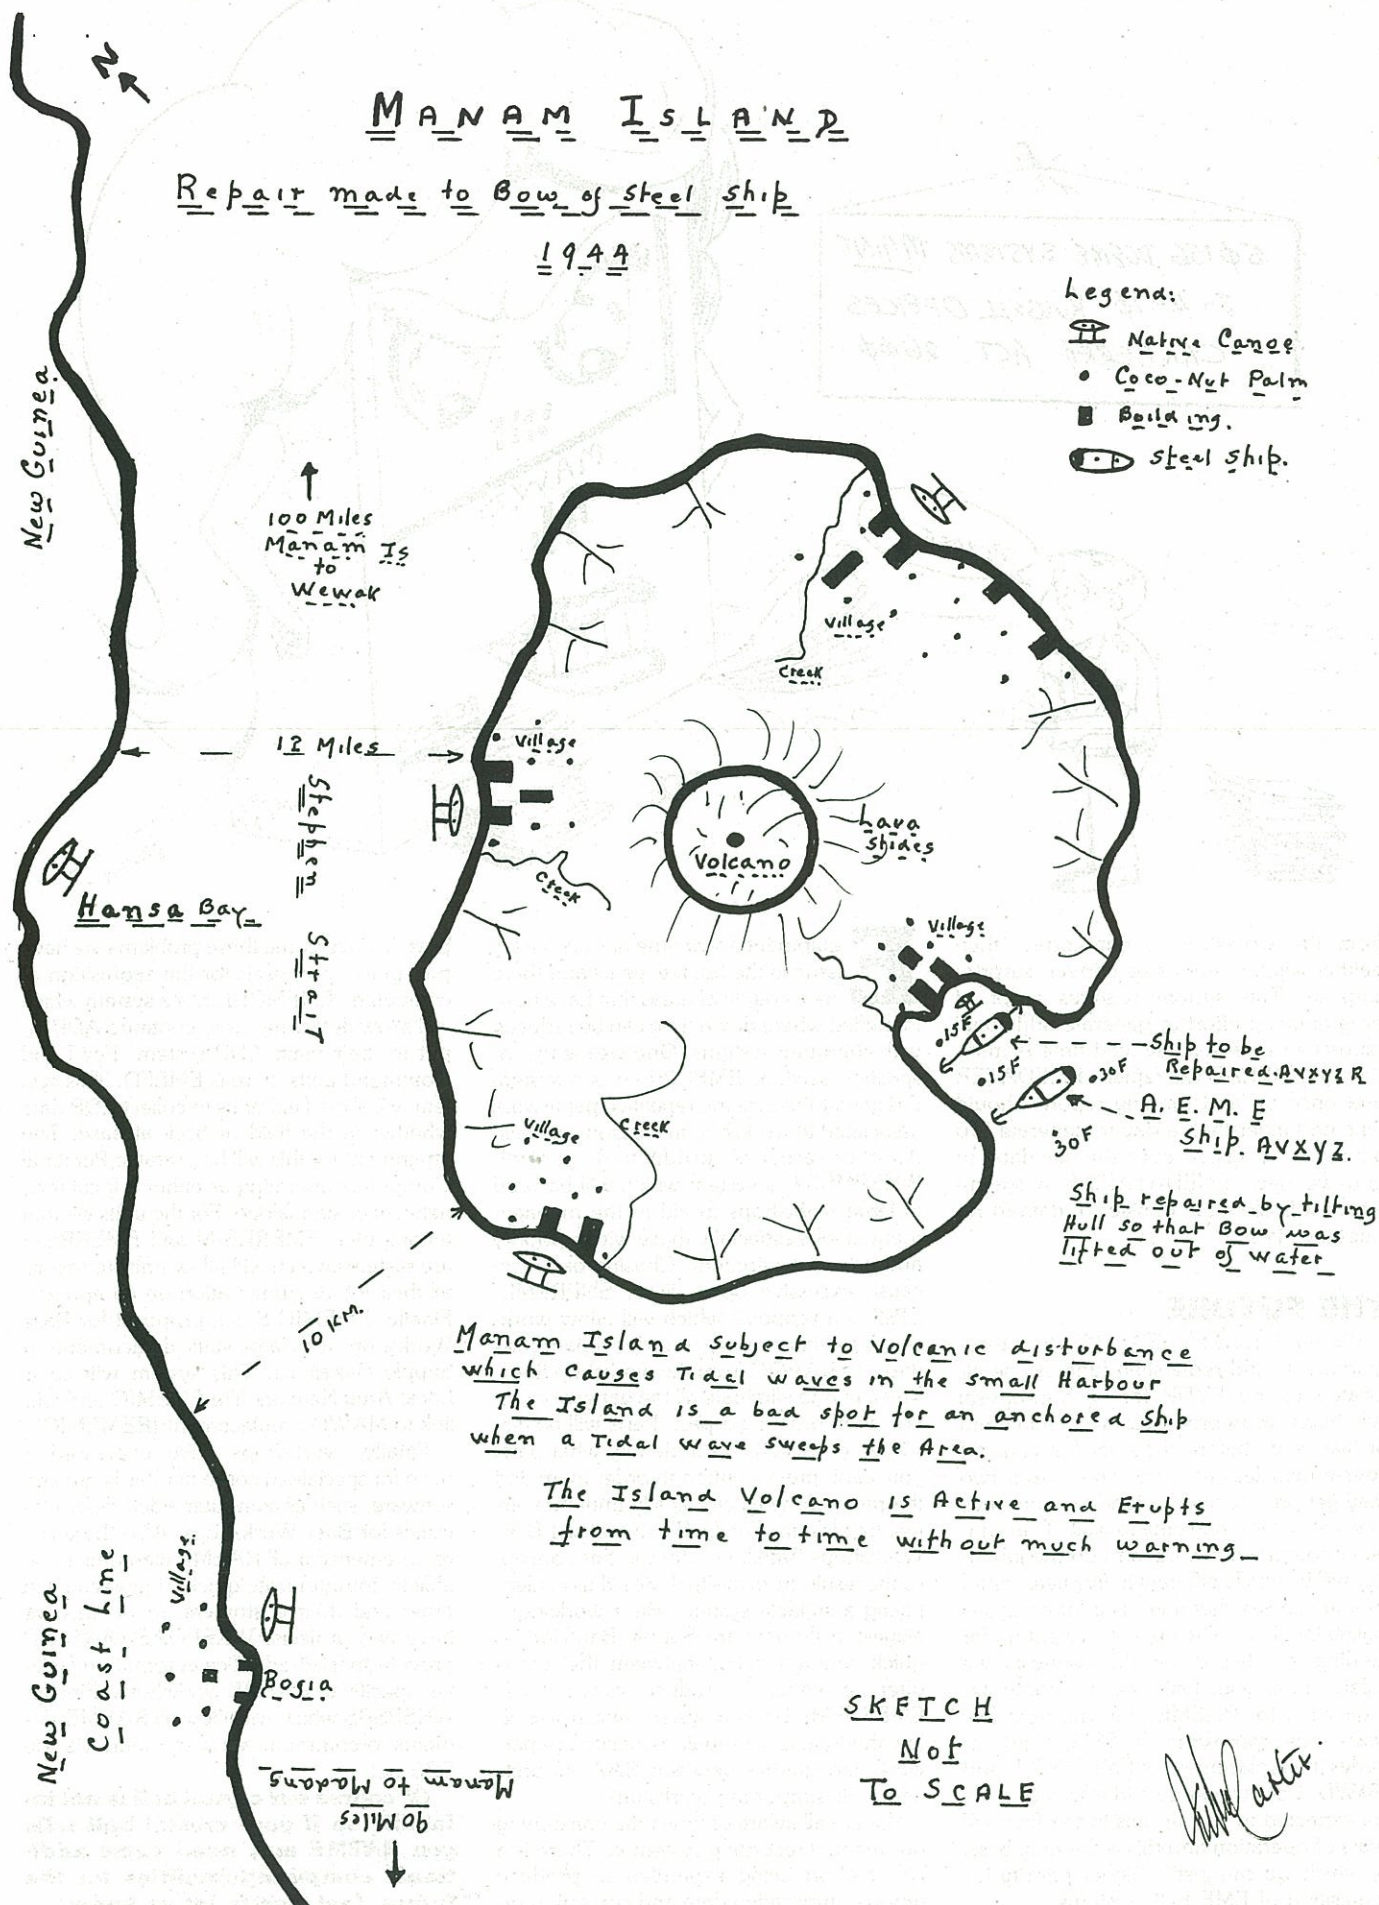 N
MANAM ISLAND
Repair made to Bow of Steel Ship
1944
Legend:
Native Canoe
Coco-Nut Palm
Building.
Steel Ship.
New Guinea
100 Miles
Manam Is
to
Wewak
Village
Creek
12 Miles
Village
Stephen Strait
Volcano
Lava
Slides
Creek
Hansa Bay
Village
.15F
.15F
Ship to be
Repaired. AVXYZ R
.30F
A. E. M. E
Ship. AVXYZ.
.30F
Village
Creek
Ship repaired by tilting
Hull so that Bow was
lifted out of water
10 KM.
Manam Island subject to Volcanic disturbance
which causes Tidal waves in the small Harbour
The Island is a bad spot for an anchored ship
when a Tidal wave sweeps the Area.
The Island Volcano is Active and Erupts
from time to time without much warning
Village
New Guinea
Coast Line
Bogia
90 Miles
Manam to Madang
SKETCH
Not
To SCALE